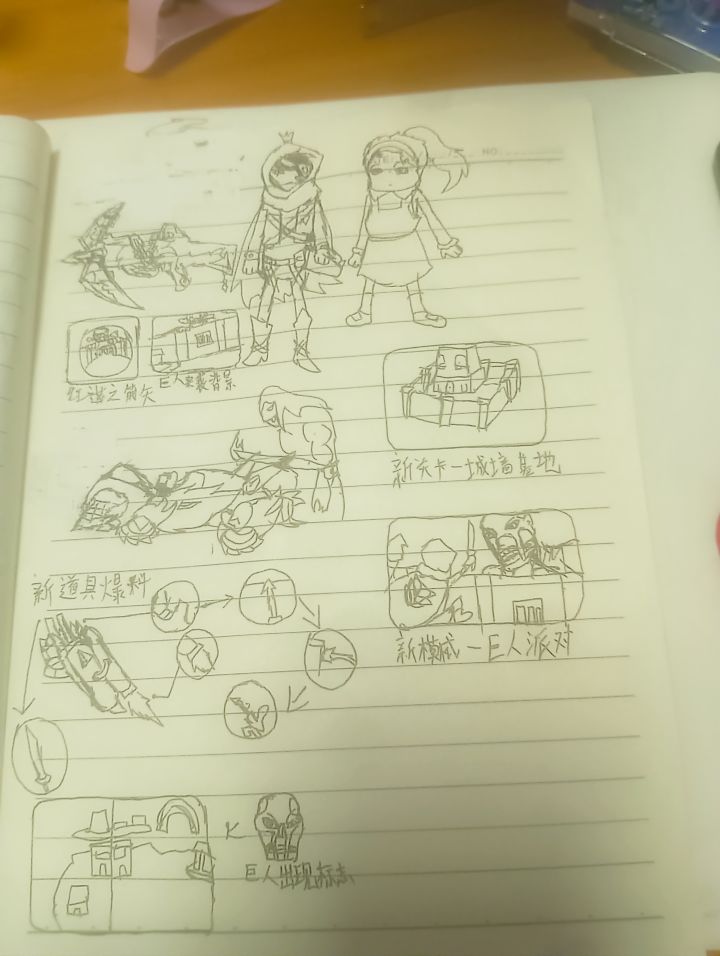 NO:
红莲之箭矢
巨人来袭背景
新关卡—城墙基地
新道具爆料
新模式—巨人派对
巨人出现标志